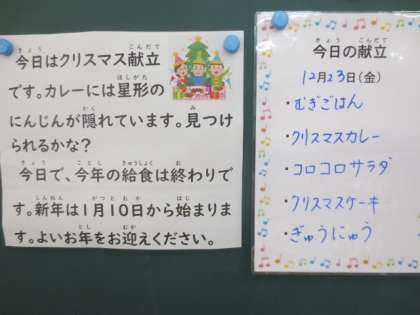 今日はクリスマス献立
です。カレーには星形の
にんじんが隠れています。見つけ
られるかな？
今日で、今年の給食は終わりで
す。新年は１月１０日から始まりま
す。よいお年をお迎えください。
今日の献立
12月23日(金)
・むぎごはん
・クリスマスカレー
・コロコロサラダ
・クリスマスケーキ
・ぎゅうにゅう